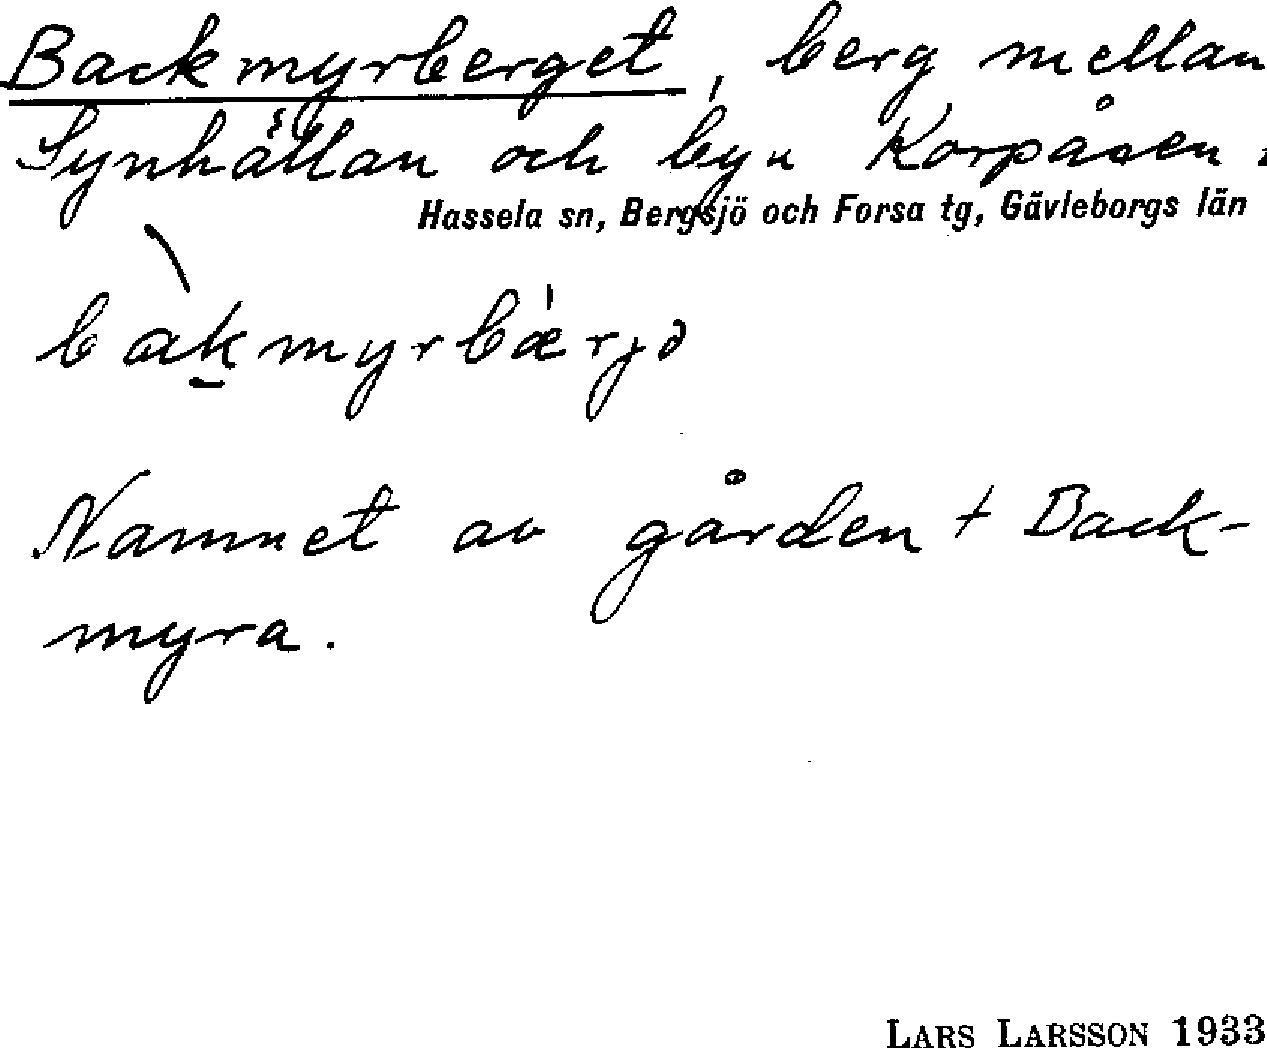 Backmyrberget, berg mellan
Synhällan och byn Korpåsen.
Hassela sn, Bergsjö och Forsa tg, Gävleborgs län
bàkmyrbæ̍rjə
Namnet av gården + Back-
myra.
LARS LARSSON 1933